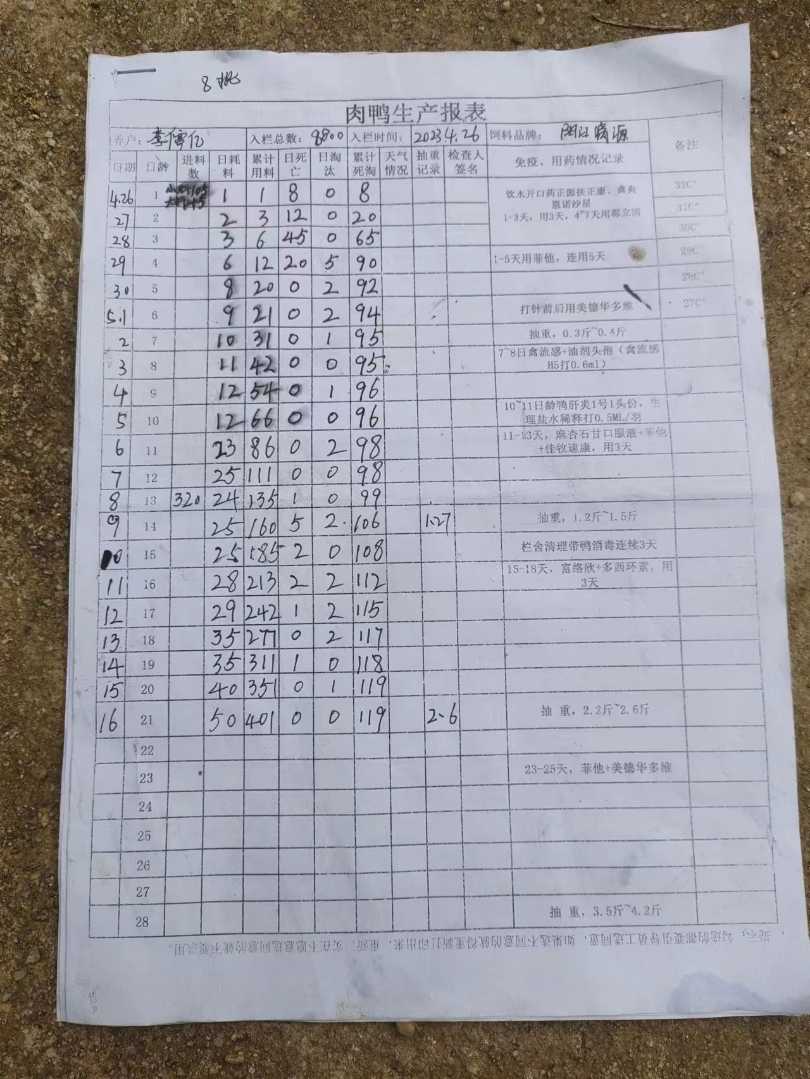 8批
肉鸭生产报表
养户: 入栏总数: 8800 入栏时间: 2023.4.26 饲料品牌: 阳江 备注
日期 日龄 进料数 日耗料 累计用料 日死亡 日淘汰 累计死淘 天气情况 抽重记录 检查人签名 免疫、用药情况记录
4.26 1 1 1 8 0 8 饮水开口药正源扶正康、禽炎
1-3天，用3天，4~7天用 33C°
27 2 2 3 12 0 20
28 3 3 6 45 0 65 30C°
29 4 6 12 20 5 90 1-5天用菲他，连用5天 29C°
30 5 8 20 0 2 92 28C°
5.1 6 9 21 0 2 94 打针前后用美德华多维 27C°
2 7 10 31 0 1 95 抽重，0.3斤~0.4斤
3 8 11 42 0 0 95 7~8日禽流感+油剂头孢（禽流感H5打0.6ml）
4 9 12 54 0 1 96
5 10 12 66 0 0 96 10~11日龄鸭肝炎1号1头份，生理盐水稀释打0.5ML/羽
6 11 23 86 0 2 98 11-13天，麻杏石甘口服液+菲他+佳牧速康，用3天
7 12 25 111 0 0 98
8 13 320 24 135 1 0 99
9 14 25 160 5 2 106 1.27 抽重，1.2斤~1.5斤
10 15 25 185 2 0 108 栏舍清理带鸭消毒连续3天
11 16 28 213 2 2 112 15-18天，富络欣+多西环素，用3天
12 17 29 242 1 2 115
13 18 35 277 0 2 117
14 19 35 311 1 0 118
15 20 40 351 0 1 119
16 21 50 401 0 0 119 2.6 抽 重，2.2斤~2.6斤
22
23 23-25天，菲他+美德华多维
24
25
26
27
28 抽 重，3.5斤~4.2斤